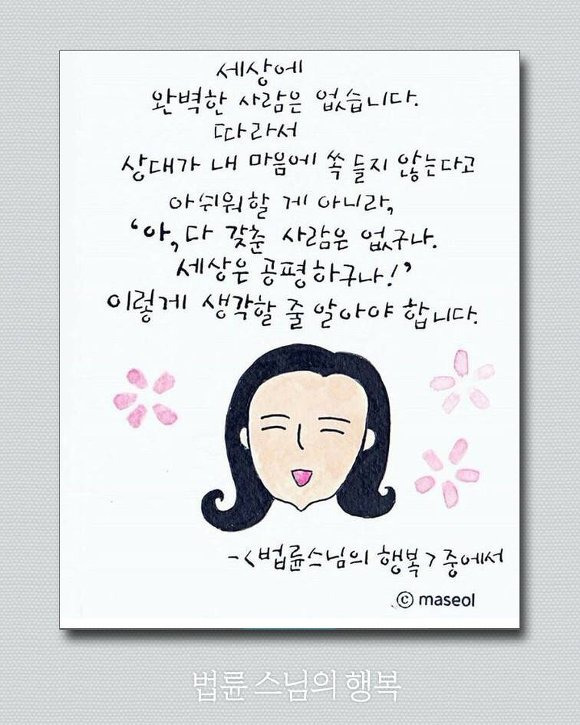 세상에
완벽한 사람은 없습니다.
따라서
상대가 내 마음에 쏙 들지 않는다고
아쉬워할 게 아니라,
‘아, 다 갖춘 사람은 없구나.
세상은 공평하구나!’
이렇게 생각할 줄 알아야 합니다.
-<법륜스님의 행복> 중에서
ⓒ maseol
법륜 스님의 행복